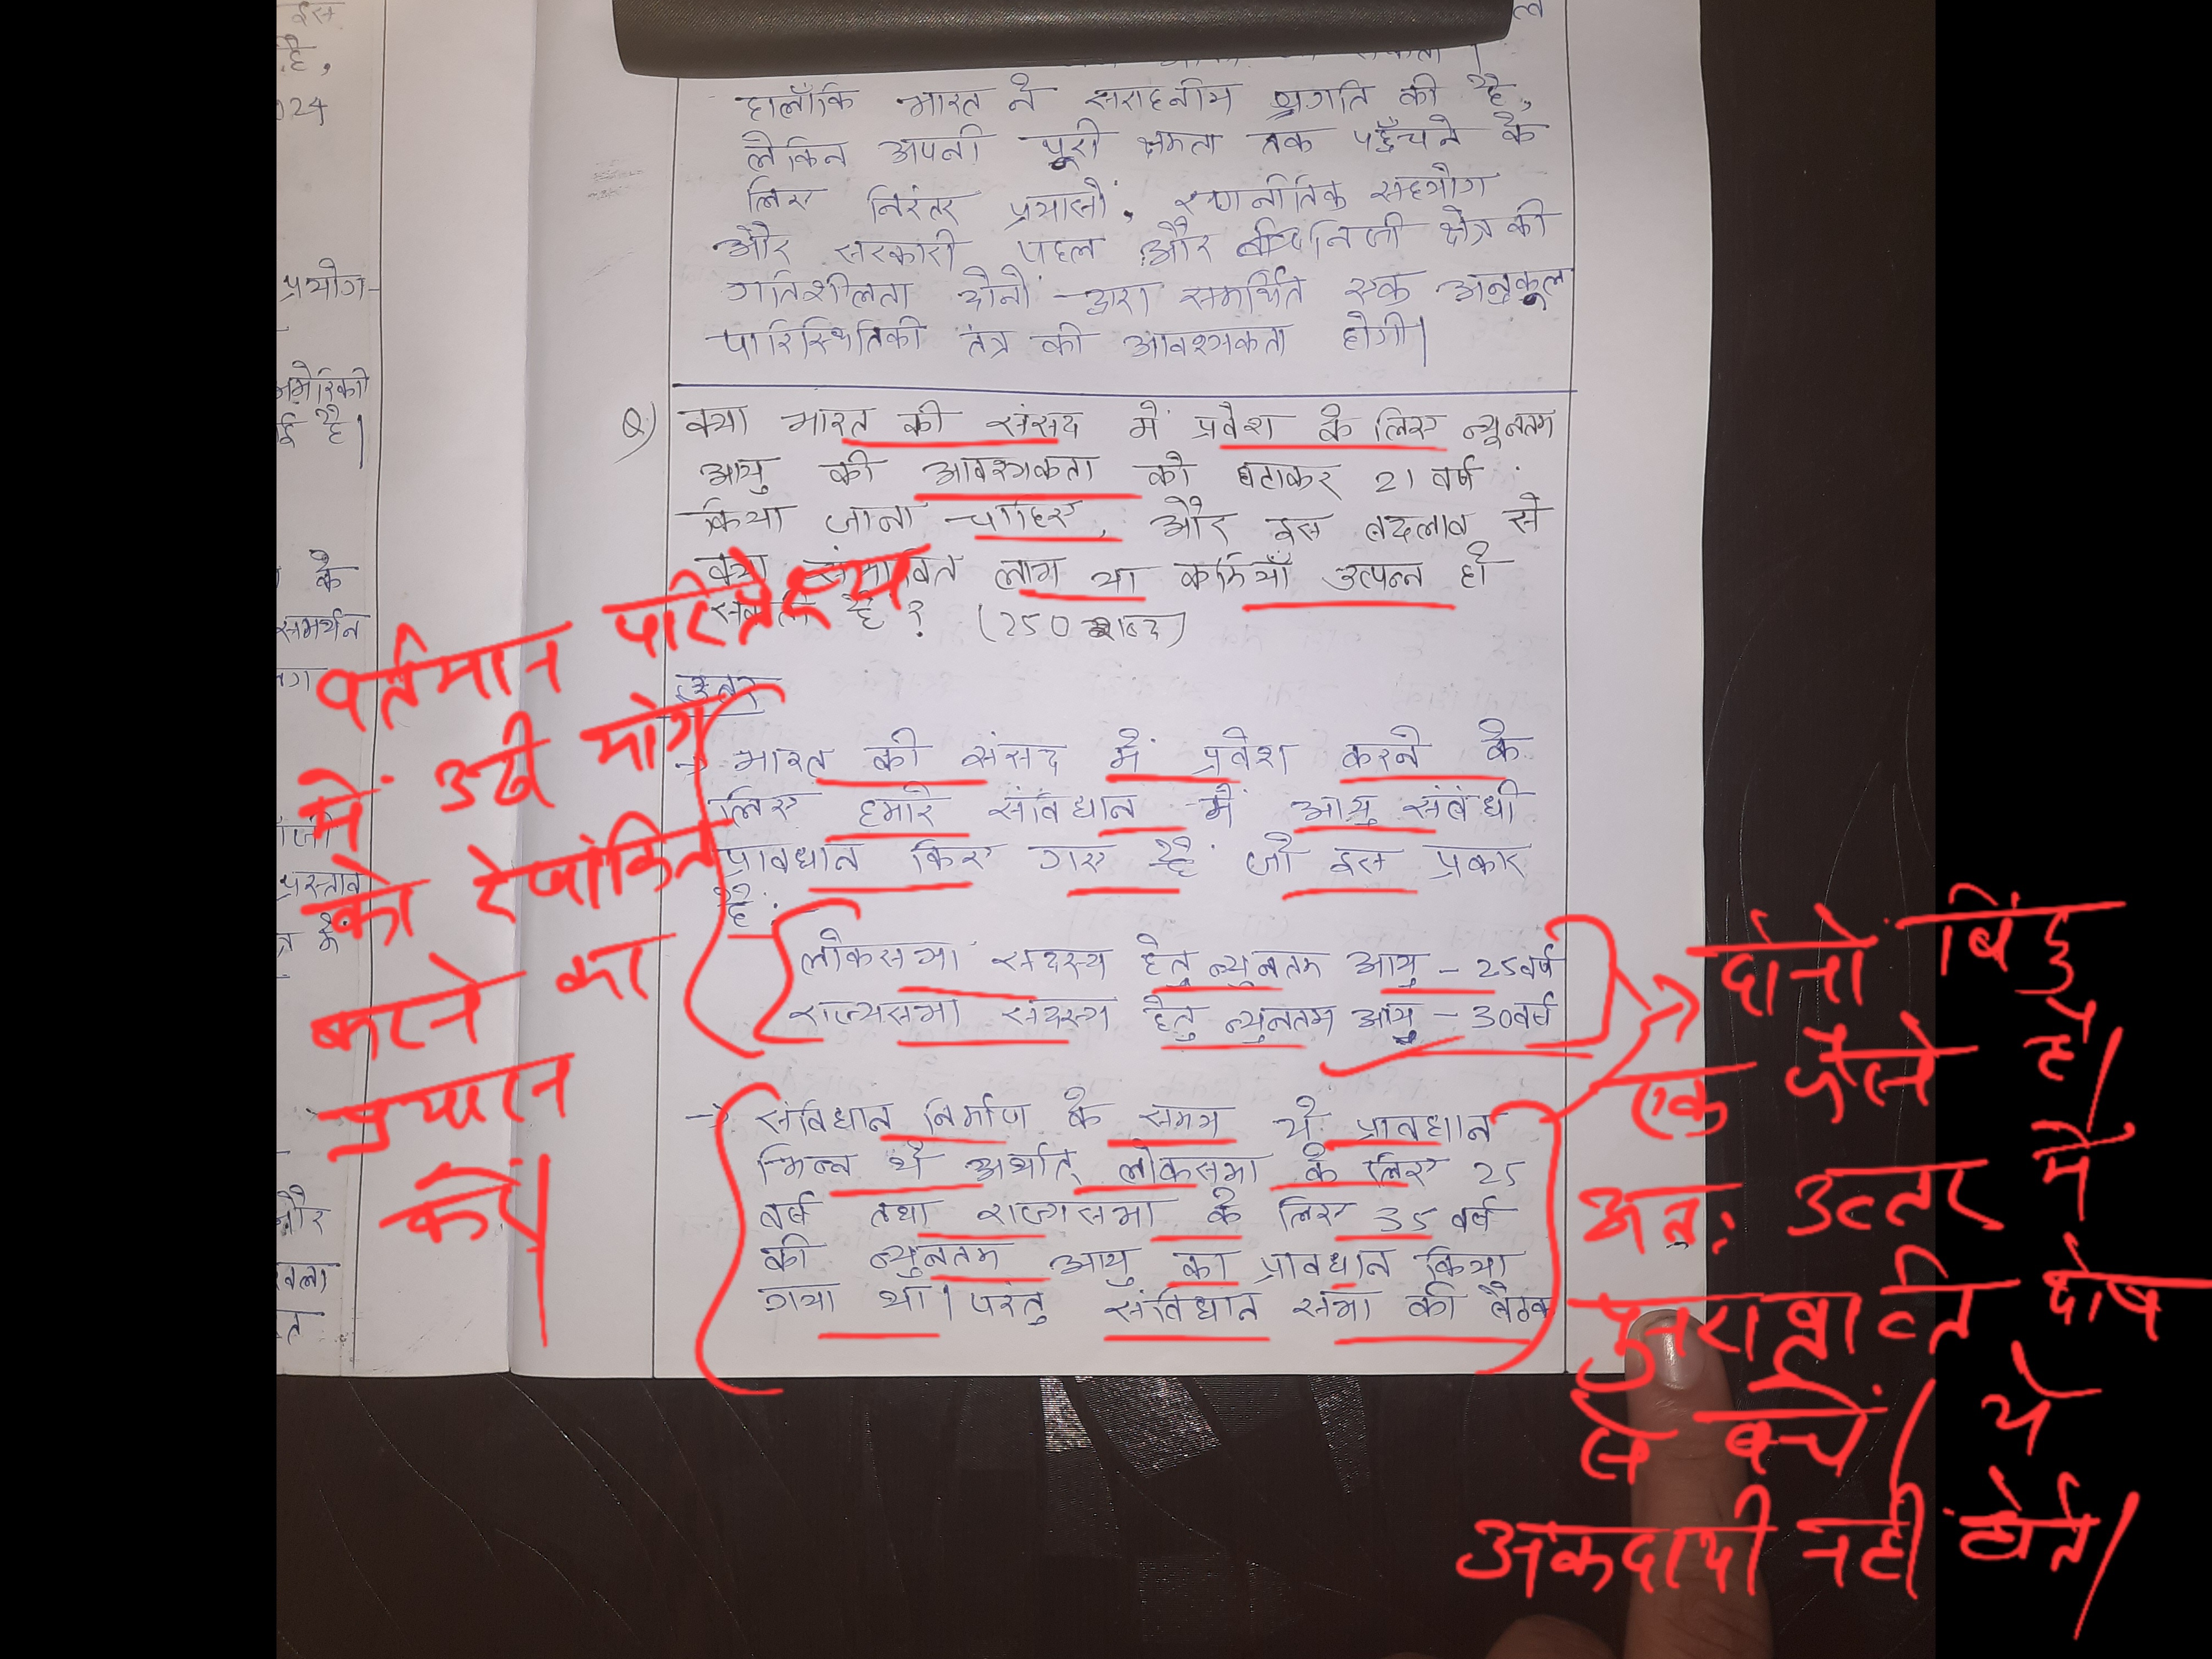 इस
है,
024
प्रयोग-
अमेरिकी
ई है।
के
समर्थन
प्रस्ताव
और
हालाँकि भारत ने सराहनीय प्रगति की है,
लेकिन अपनी पूरी क्षमता तक पहुँचने के
लिए निरंतर प्रयासों, रणनीतिक सहयोग
और सरकारी पहल और निजी क्षेत्र की
गतिशीलता दोनों द्वारा समर्थित एक अनुकूल
पारिस्थितिकी तंत्र की आवश्यकता होगी।
Q) क्या भारत की संसद में प्रवेश के लिए न्यूनतम
आयु की आवश्यकता को घटाकर 21 वर्ष
किया जाना चाहिए, और इस बदलाव से
क्या संभावित लाभ या कमियाँ उत्पन्न हो
सकती है? (250 शब्द)
उत्तर
→ भारत की संसद में प्रवेश करने के
लिए हमारे संविधान में आयु संबंधी
प्रावधान किए गए है जो इस प्रकार
है:
लोकसभा सदस्य हेतु न्युनतम आयु - 25वर्ष
राज्यसभा सदस्य हेतु न्युनतम आयु - 30वर्ष
→ संविधान निर्माण के समय ये प्रावधान
भिन्न थे अर्थात् लोकसभा के लिए 25
वर्ष तथा राज्यसभा के लिए 35 वर्ष
की न्युनतम आयु का प्रावधान किया
गया था। परंतु संविधान सभा की बैठक
वर्तमान परिप्रेक्ष्य
में उठी मांग
को रेखांकित
करने का
प्रयास
करें।
दोनो बिंदु
एक जैसे है।
अतः उत्तर में
पुनरावृत्ति दोष
से बचें। ये
अंकदायी नही होते।